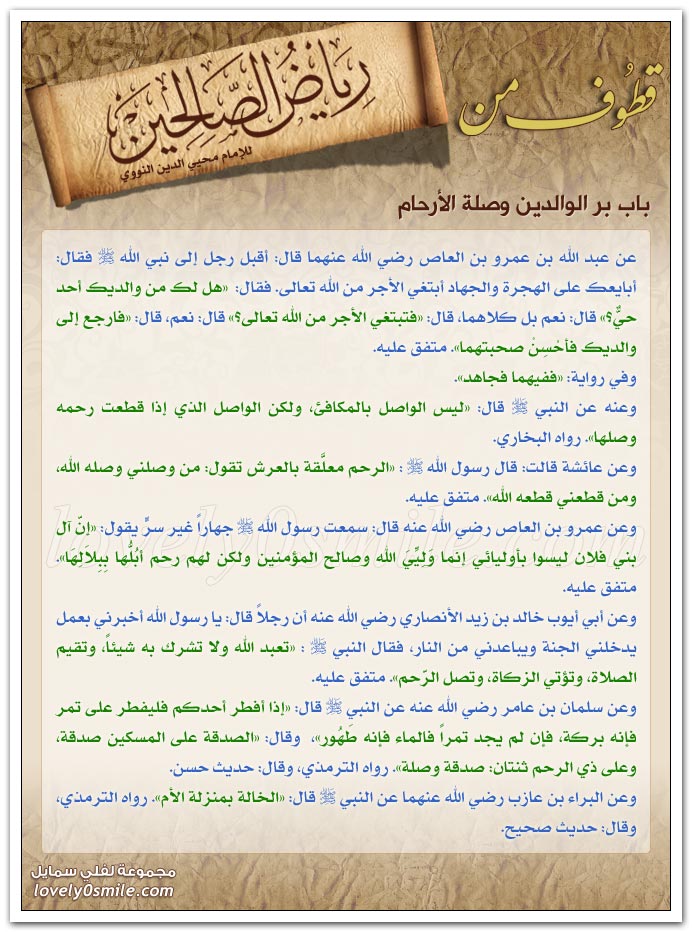 قطوف من
رياض الصالحين
للإمام محيي الدين النووي
باب بر الوالدين وصلة الأرحام
عن عبد الله بن عمرو بن العاص رضي الله عنهما قال: أقبل رجل إلى نبي الله ﷺ فقال:
أبايعك على الهجرة والجهاد أبتغي الأجر من الله تعالى. فقال: «هل لك من والديك أحد
حيٌّ؟» قال: نعم بل كلاهما، قال: «فتبتغي الأجر من الله تعالى؟» قال: نعم، قال: «فارجع إلى
والديك فأحْسِنْ صحبتهما». متفق عليه.
وفي رواية: «ففيهما فجاهد».
وعنه عن النبي ﷺ قال: «ليس الواصل بالمكافئ، ولكن الواصل الذي إذا قطعت رحمه
وصلها». رواه البخاري.
وعن عائشة قالت: قال رسول الله ﷺ : «الرحم معلَّقة بالعرش تقول: من وصلني وصله الله،
ومن قطعني قطعه الله». متفق عليه.
وعن عمرو بن العاص رضي الله عنه قال: سمعت رسول الله ﷺ جهاراً غير سرٍّ يقول: «إنّ آل
بني فلان ليسوا بأوليائي إنَما وَلِيِّيَ الله وصالح المؤمنين ولكن لهم رحم أبُلُّها بِبِلاَلِهَا».
متفق عليه.
وعن أبي أيوب خالد بن زيد الأنصاري رضي الله عنه أن رجلاً قال: يا رسول الله أخبرني بعمل
يدخلني الجنة ويباعدني من النار، فقال النبي ﷺ : «تعبد الله ولا تشرك به شيئاً، وتقيم
الصلاة، وتؤتي الزكاة، وتصل الرّحم». متفق عليه.
وعن سلمان بن عامر رضي الله عنه عن النبي ﷺ قال: «إذا أفطر أحدكم فليفطر على تمر
فإنه بركة، فإن لم يجد تمراً فالماء فإنه طَهُور»، وقال: «الصدقة على المسكين صدقة،
وعلى ذي الرحم ثنتان: صدقة وصلة». رواه الترمذي، وقال: حديث حسن.
وعن البراء بن عازب رضي الله عنهما عن النبي ﷺ قال: «الخالة بمنزلة الأم». رواه الترمذي،
وقال: حديث صحيح.
lovely0smile.com
مجموعة لفلي سمايل
lovely0smile.com